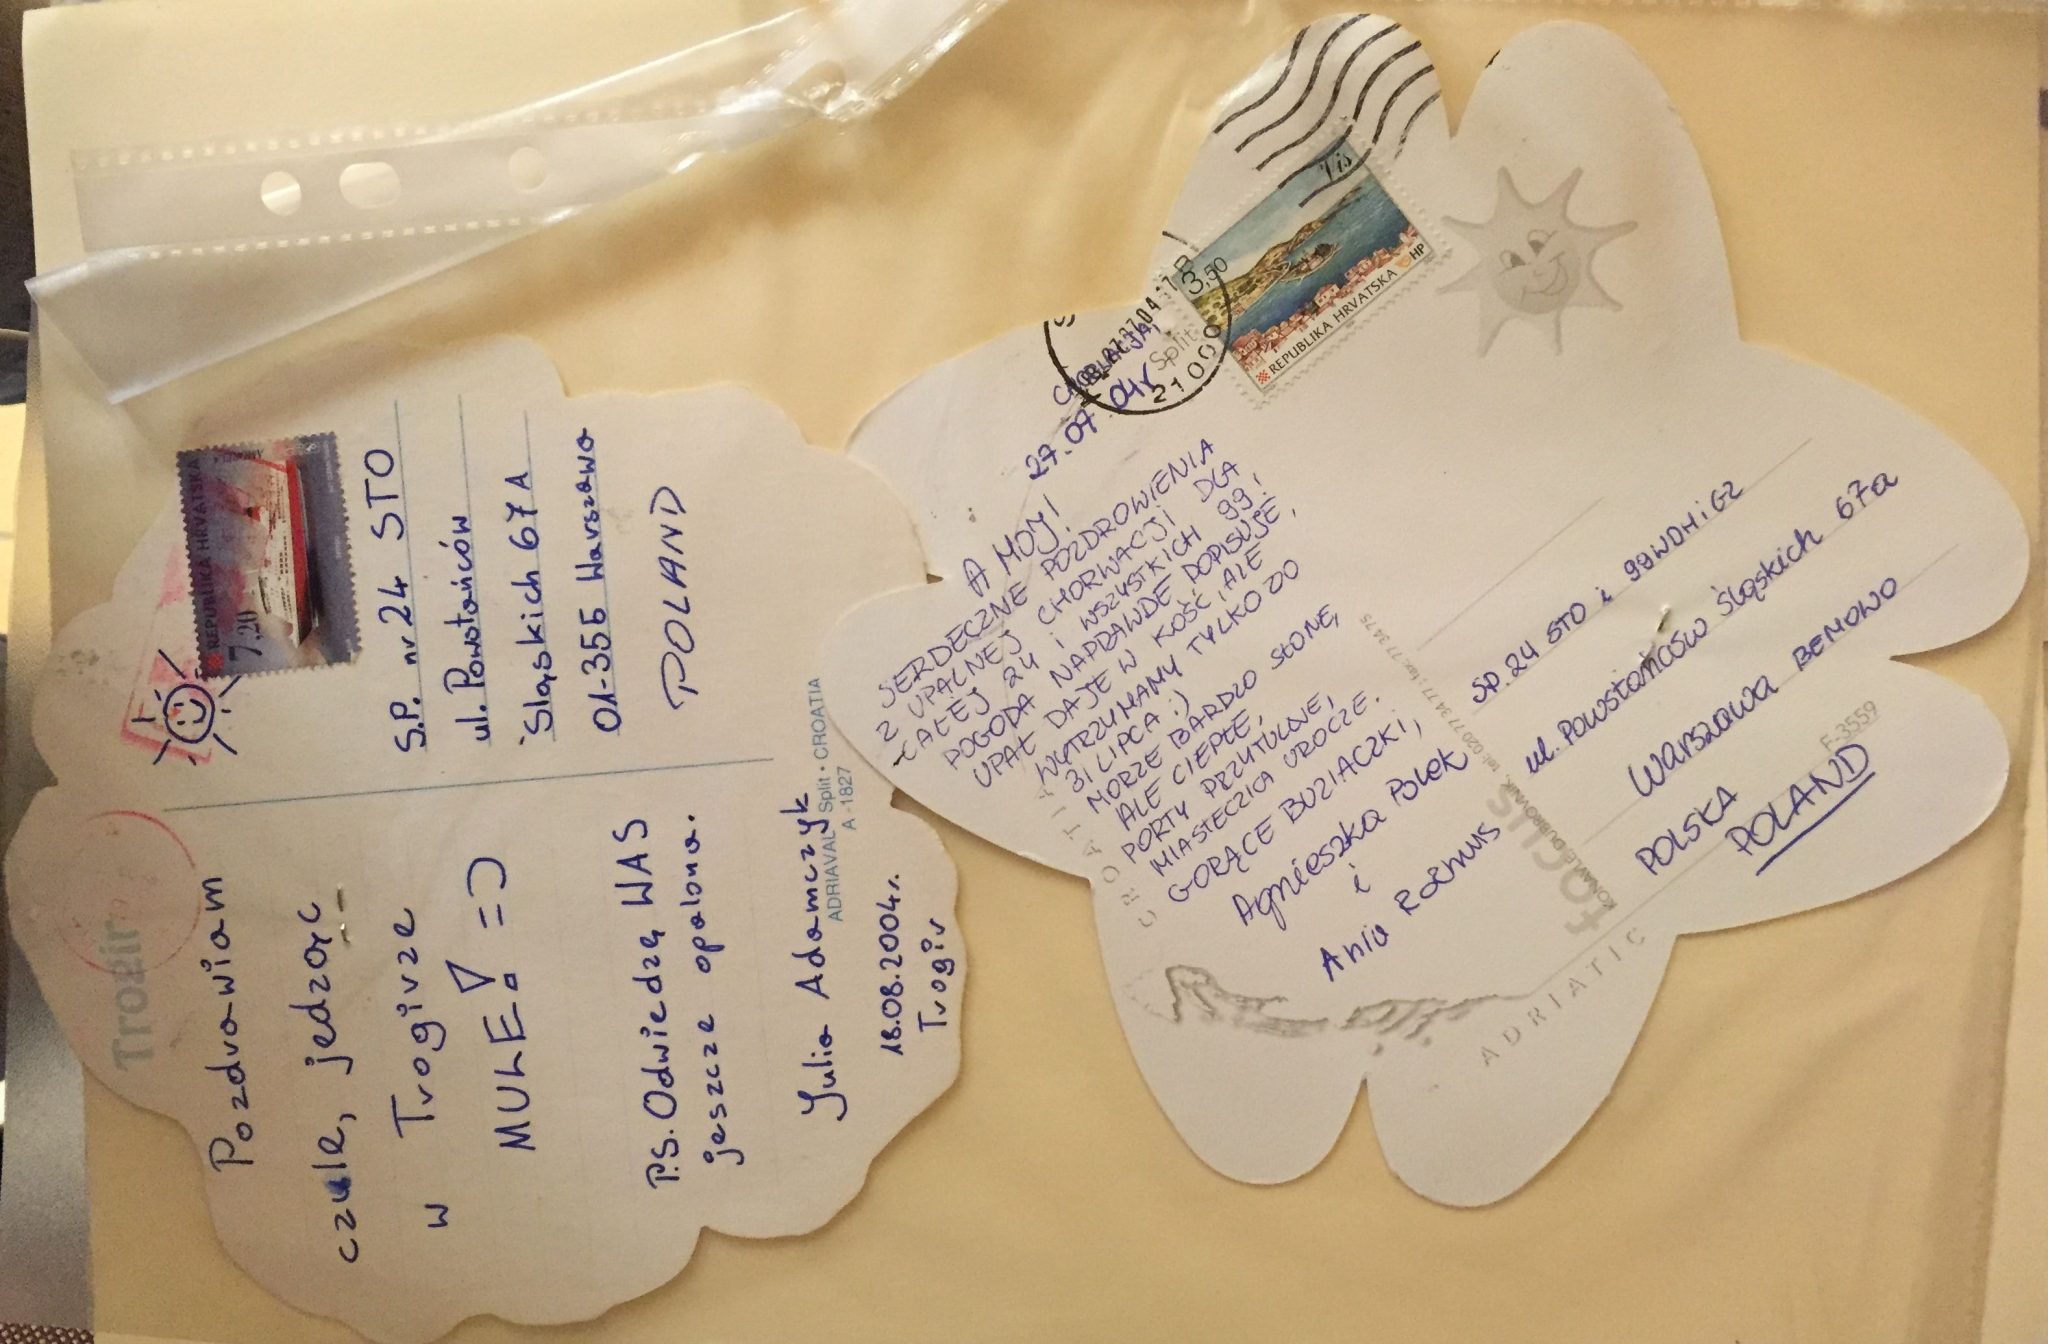 Trogir
Pozdrawiam
czule, jedząc
w Trogirze
MULE! =)
P.S. Odwiedzę WAS
jeszcze opalona.
Julia Adamczyk
18.08.2004r.
Trogir
REPUBLIKA HRVATSKA
7,20
S.P. nr 24 STO
ul. Powstańców
Śląskich 67A
01-355 Warszawa
POLAND
ADRIAVAL Split • CROATIA
A -1827
CHORWACJA,
27.07.04r
AHOJ!
SERDECZNE POZDROWIENIA
Z UPALNEJ CHORWACJI DLA
CAŁEJ 24 I WSZYSTKICH 99!
POGODA NAPRAWDĘ DOPISUJE,
UPAŁ DAJE W KOŚĆ, ALE
WYTRZYMAMY TYLKO DO
31 LIPCA :)
MORZE BARDZO SŁONE,
ALE CIEPŁE,
PORTY PRZYTULNE,
MIASTECZKA UROCZE.
GORĄCE BUZIACZKI,
Agnieszka Polek
i
Ania
Split
21000
3,50
Vis
REPUBLIKA HRVATSKA HP
SP. 24 STO i 99 WDH i GZ
ul. Powstańców Śląskich 67a
Warszawa BEMOWO
POLSKA
POLAND
F-3559
focus
KONAVLE, DUBROVNIK, tel: 020 77 34 77; fax: 77 34 75
CROATIA
ADRIATIC